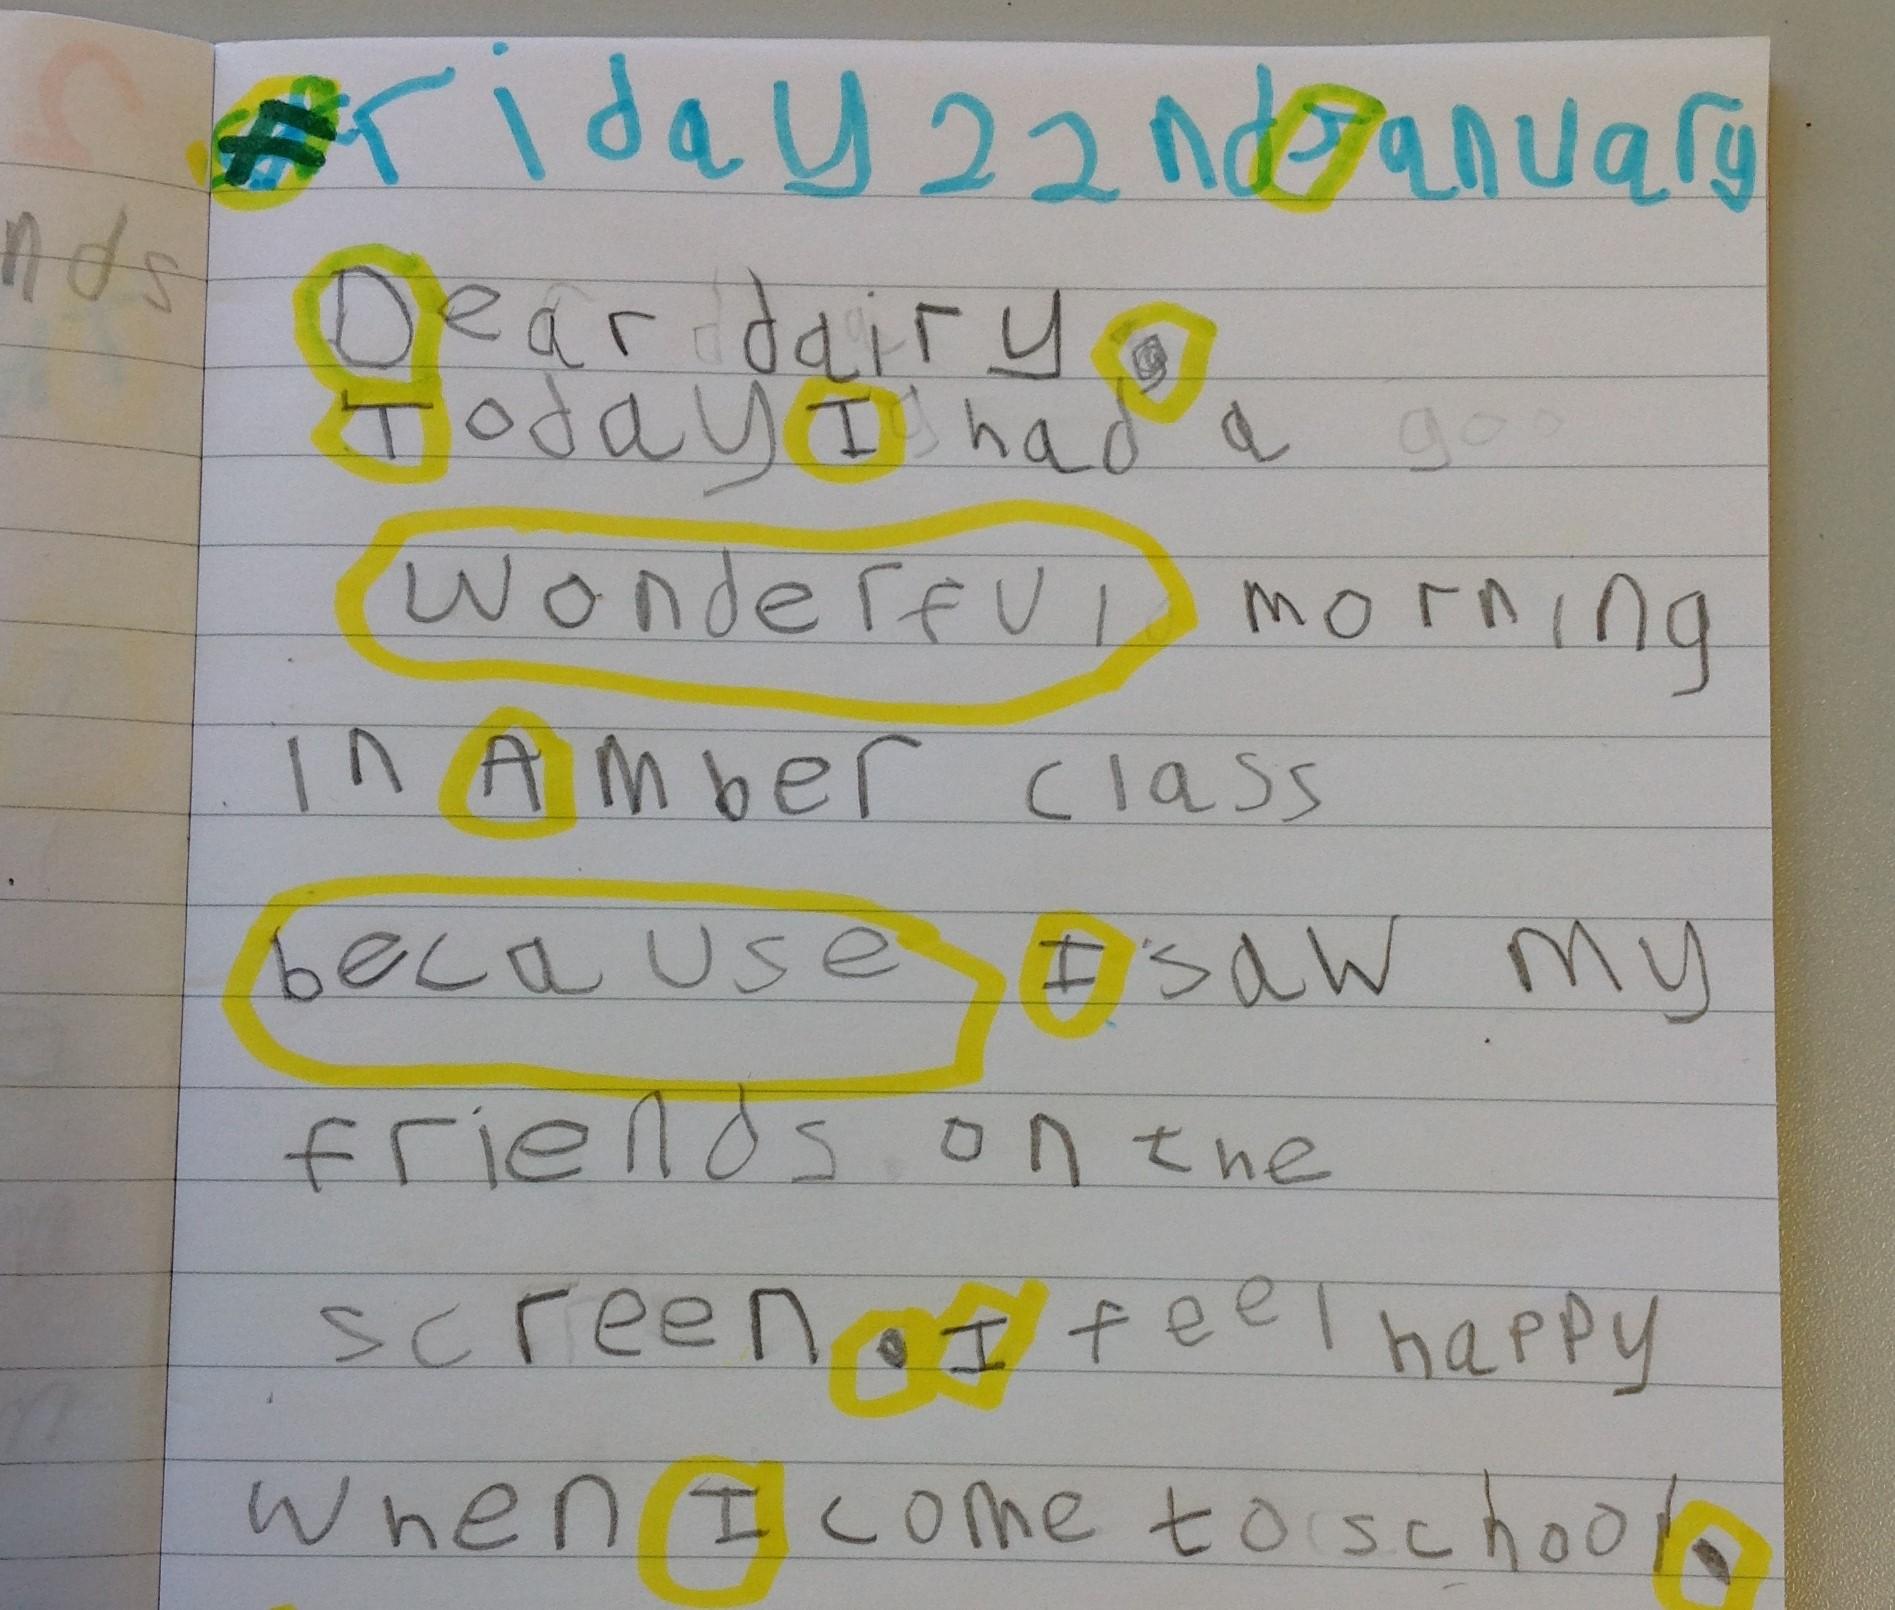 Friday 22nd January
nds
Dear dairy,
Today I had a
wonderful morning
in Amber class
because I saw my
friends on the
screen. I feel happy
when I come to school.